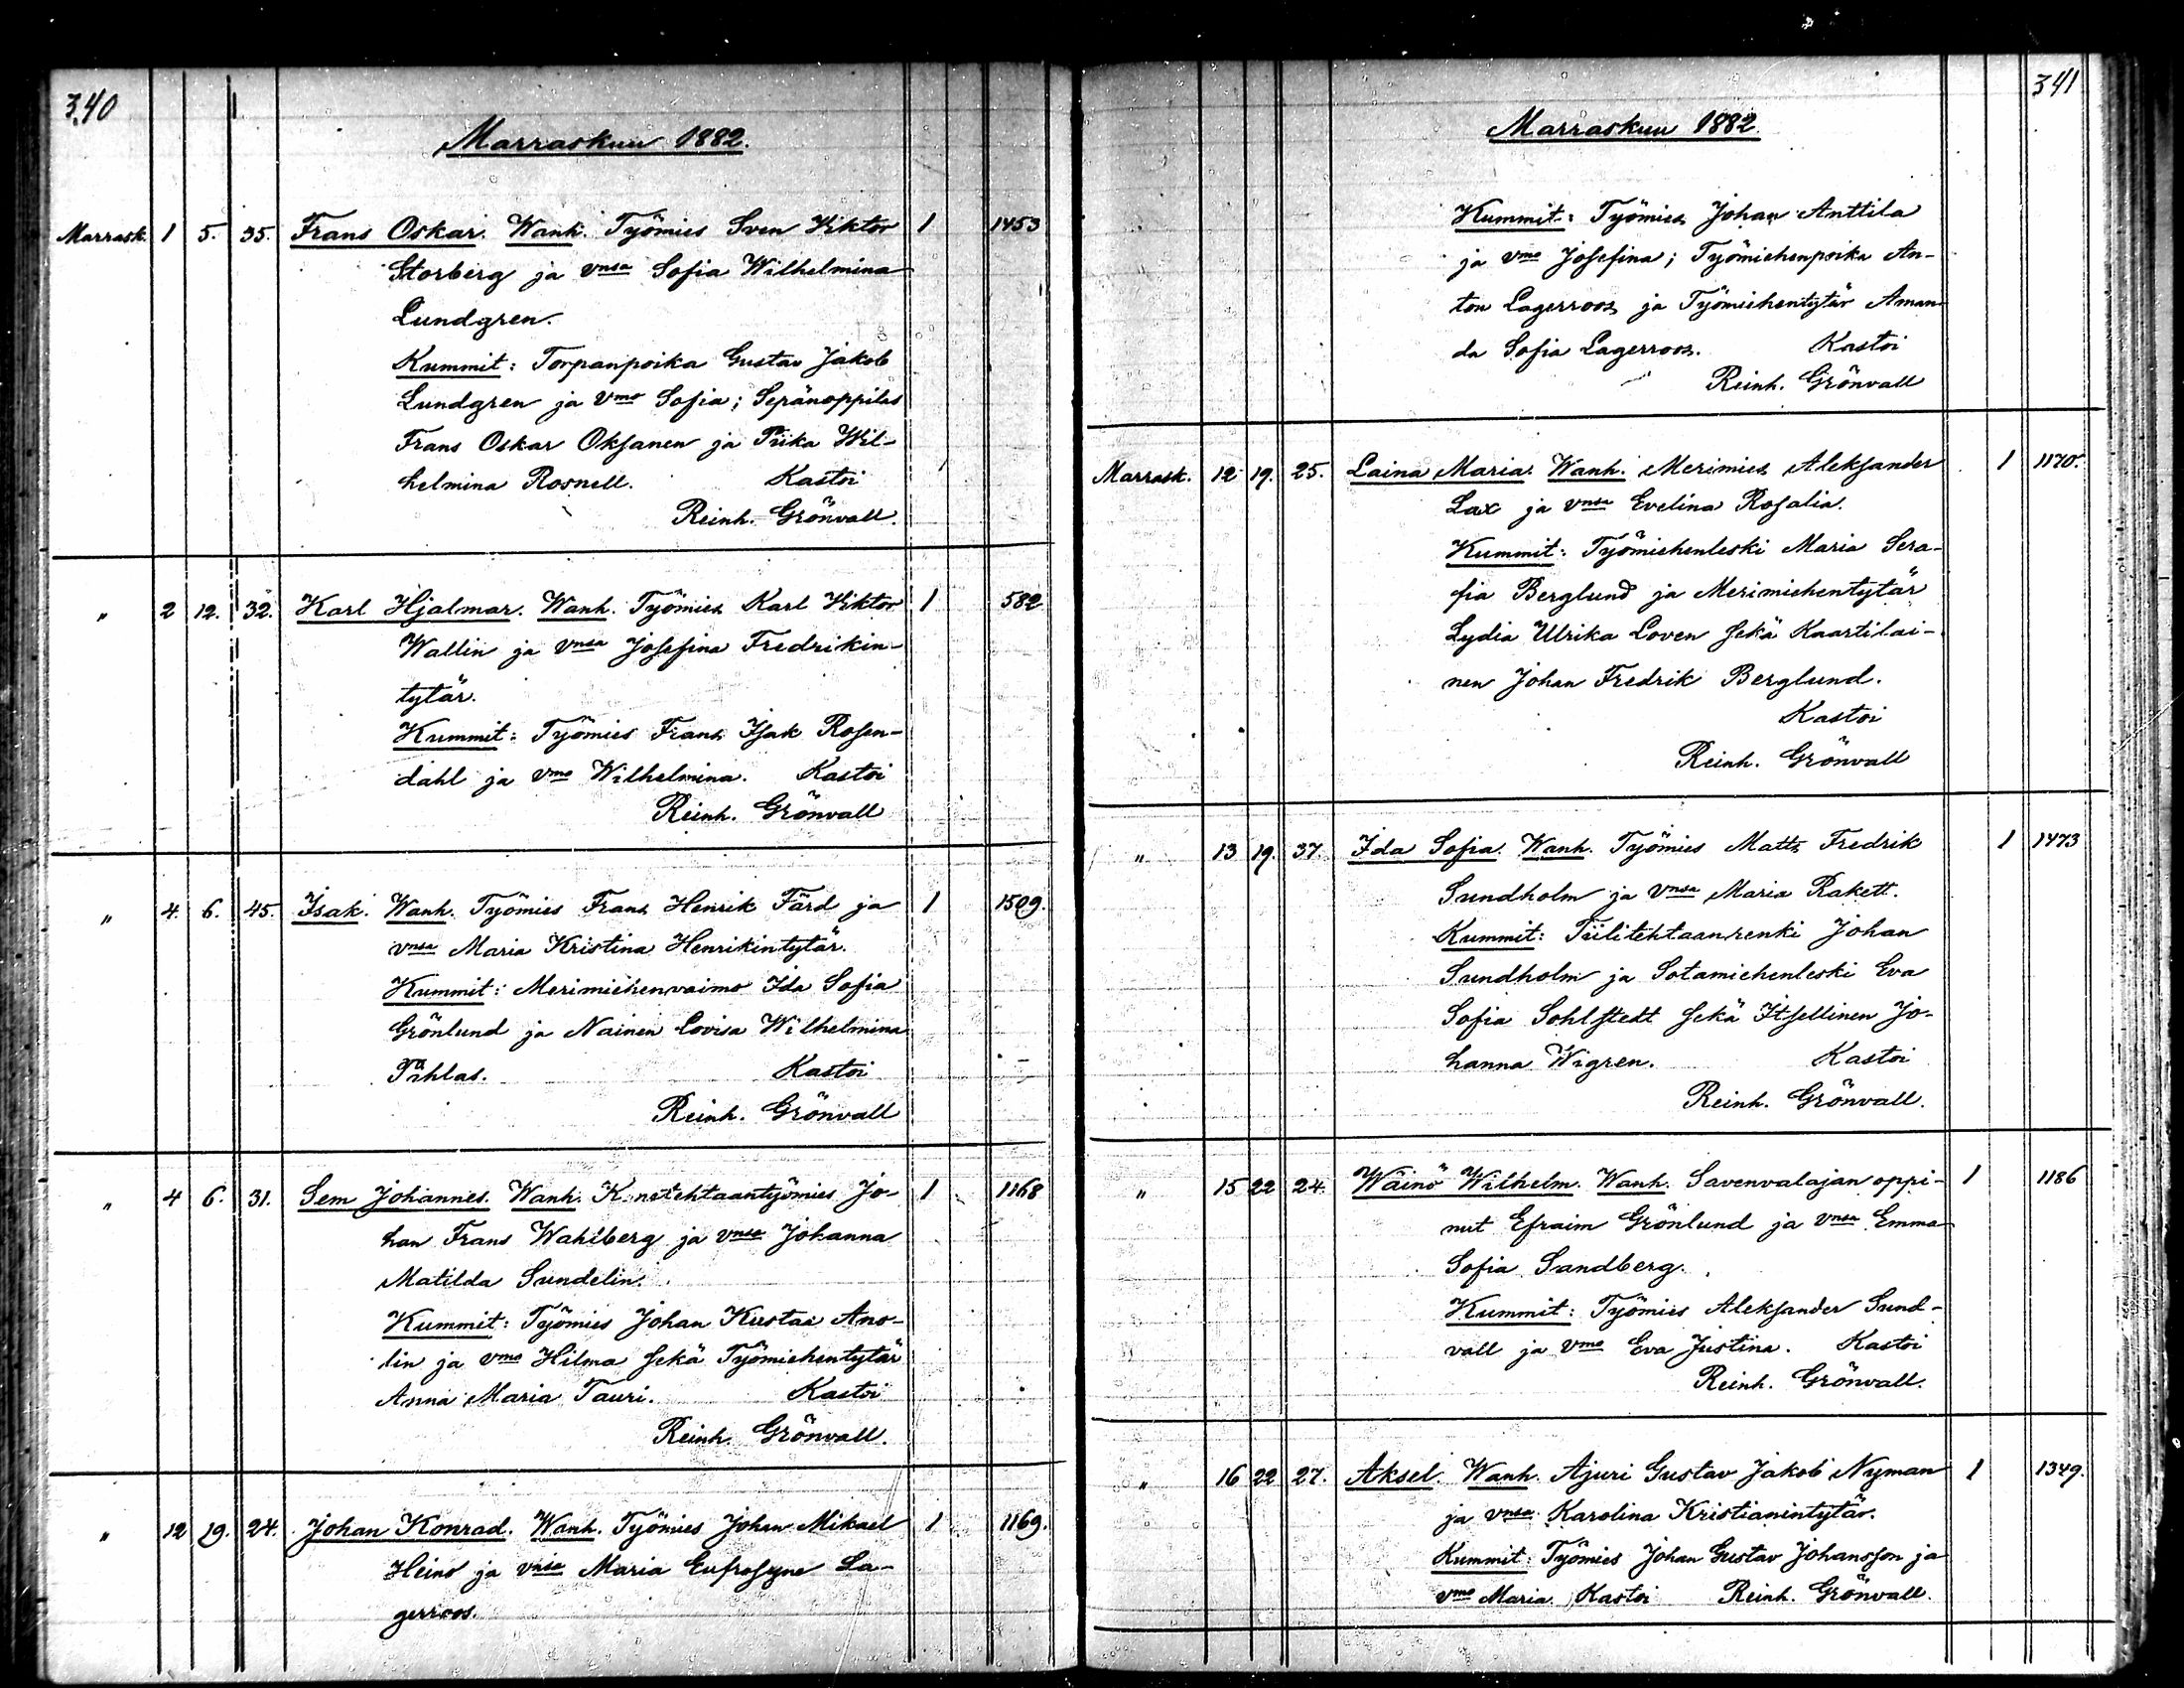 340
Marraskuu 1882.
Marrask. 1 5. 35. Frans Oskari. Wanh. Työmies Sven Viktor 1 1453
Storberg ja vnsa Sofia Wilhelmina
Lundgren.
Kummit: Torpanpoika Gustav Jakob
Lundgren ja vmo Sofia; Sepänoppilas
Frans Oskar Oksanen ja Piika Wil-
helmina Rosnell. Kastoi
Reinh. Grönvall.
" 2 12. 32. Karl Hjalmar. Wanh. Työmies Karl Viktor 1 582
Wallin ja vnsa Josefina Fredrikin-
tytär.
Kummit: Työmies Frans Isak Rosen-
dahl ja vmo Wilhelmina. Kastoi
Reinh. Grönvall
" 4. 6. 45. Isak. Wanh. Työmies Frans Henrik Färd ja 1 1509.
vnsa Maria Kristina Henrikintytär.
Kummit: Merimiehenvaimo Ida Sofia
Grönlund ja Nainen Lovisa Wilhelmina
Tählas. Kastoi
Reinh. Grönvall
" 4 6. 31. Sem Johannes. Wanh. K.netehtaantyömies Jo- 1 1168
han Frans Wahlberg ja vnsa Johanna
Matilda Sundelin.
Kummit: Työmies Johan Kustaa Ano-
lin ja vmo Hilma sekä Työmiehentytär
Anna Maria Tauri. Kastoi
Reinh. Grönvall.
" 12 19. 24. Johan Konrad. Wanh. Työmies Johan Mikael 1 1169.
Heino ja vnsa Maria Eufrosyne La-
gerroos.
341
Marraskuu 1882.
Kummit: Työmies Johan Anttila
ja vmo Josefina; Työmiehenpoika An-
ton Lagerroos ja Työmiehentytär Aman-
da Sofia Lagerroos. Kastoi
Reinh. Grönvall
Marrask. 12 19. 25. Laina Maria. Wanh. Merimies Aleksander 1 1170.
Lax ja vnsa Evelina Rosalia.
Kummit: Työmiehenleski Maria Sera-
fia Berglund ja Merimiehentytär
Lydia Ulrika Loven sekä Kaartilai-
nen Johan Fredrik Berglund.
Kastoi
Reinh. Grönvall
" 13 19. 37. Ida Sofia. Wanh. Työmies Matts Fredrik 1 1473
Sundholm ja vnsa Maria Rakett.
Kummit: Tiilitehtaanrenki Johan
Sundholm ja Sotamiehenleski Eva
Sofia Sohlstedt sekä Itsellinen Jo-
hanna Wigren. Kastoi
Reinh. Grönvall.
" 15 22 24. Wäinö Wilhelm. Wanh. Savenvalajanoppi- 1 1186
nut Efraim Grönlund ja vnsa Emma
Sofia Sandberg.
Kummit: Työmies Aleksander Sund-
vall ja vmo Eva Justina. Kastoi
Reinh. Grönvall.
" 16 22 27. Aksel. Wanh. Ajuri Gustav Jakob Nyman 1 1349.
ja vnsa Karolina Kristianintytär.
Kummit: Työmies Johan Gustav Johansson ja
vmo Maria. Kastoi Reinh. Grönvall.